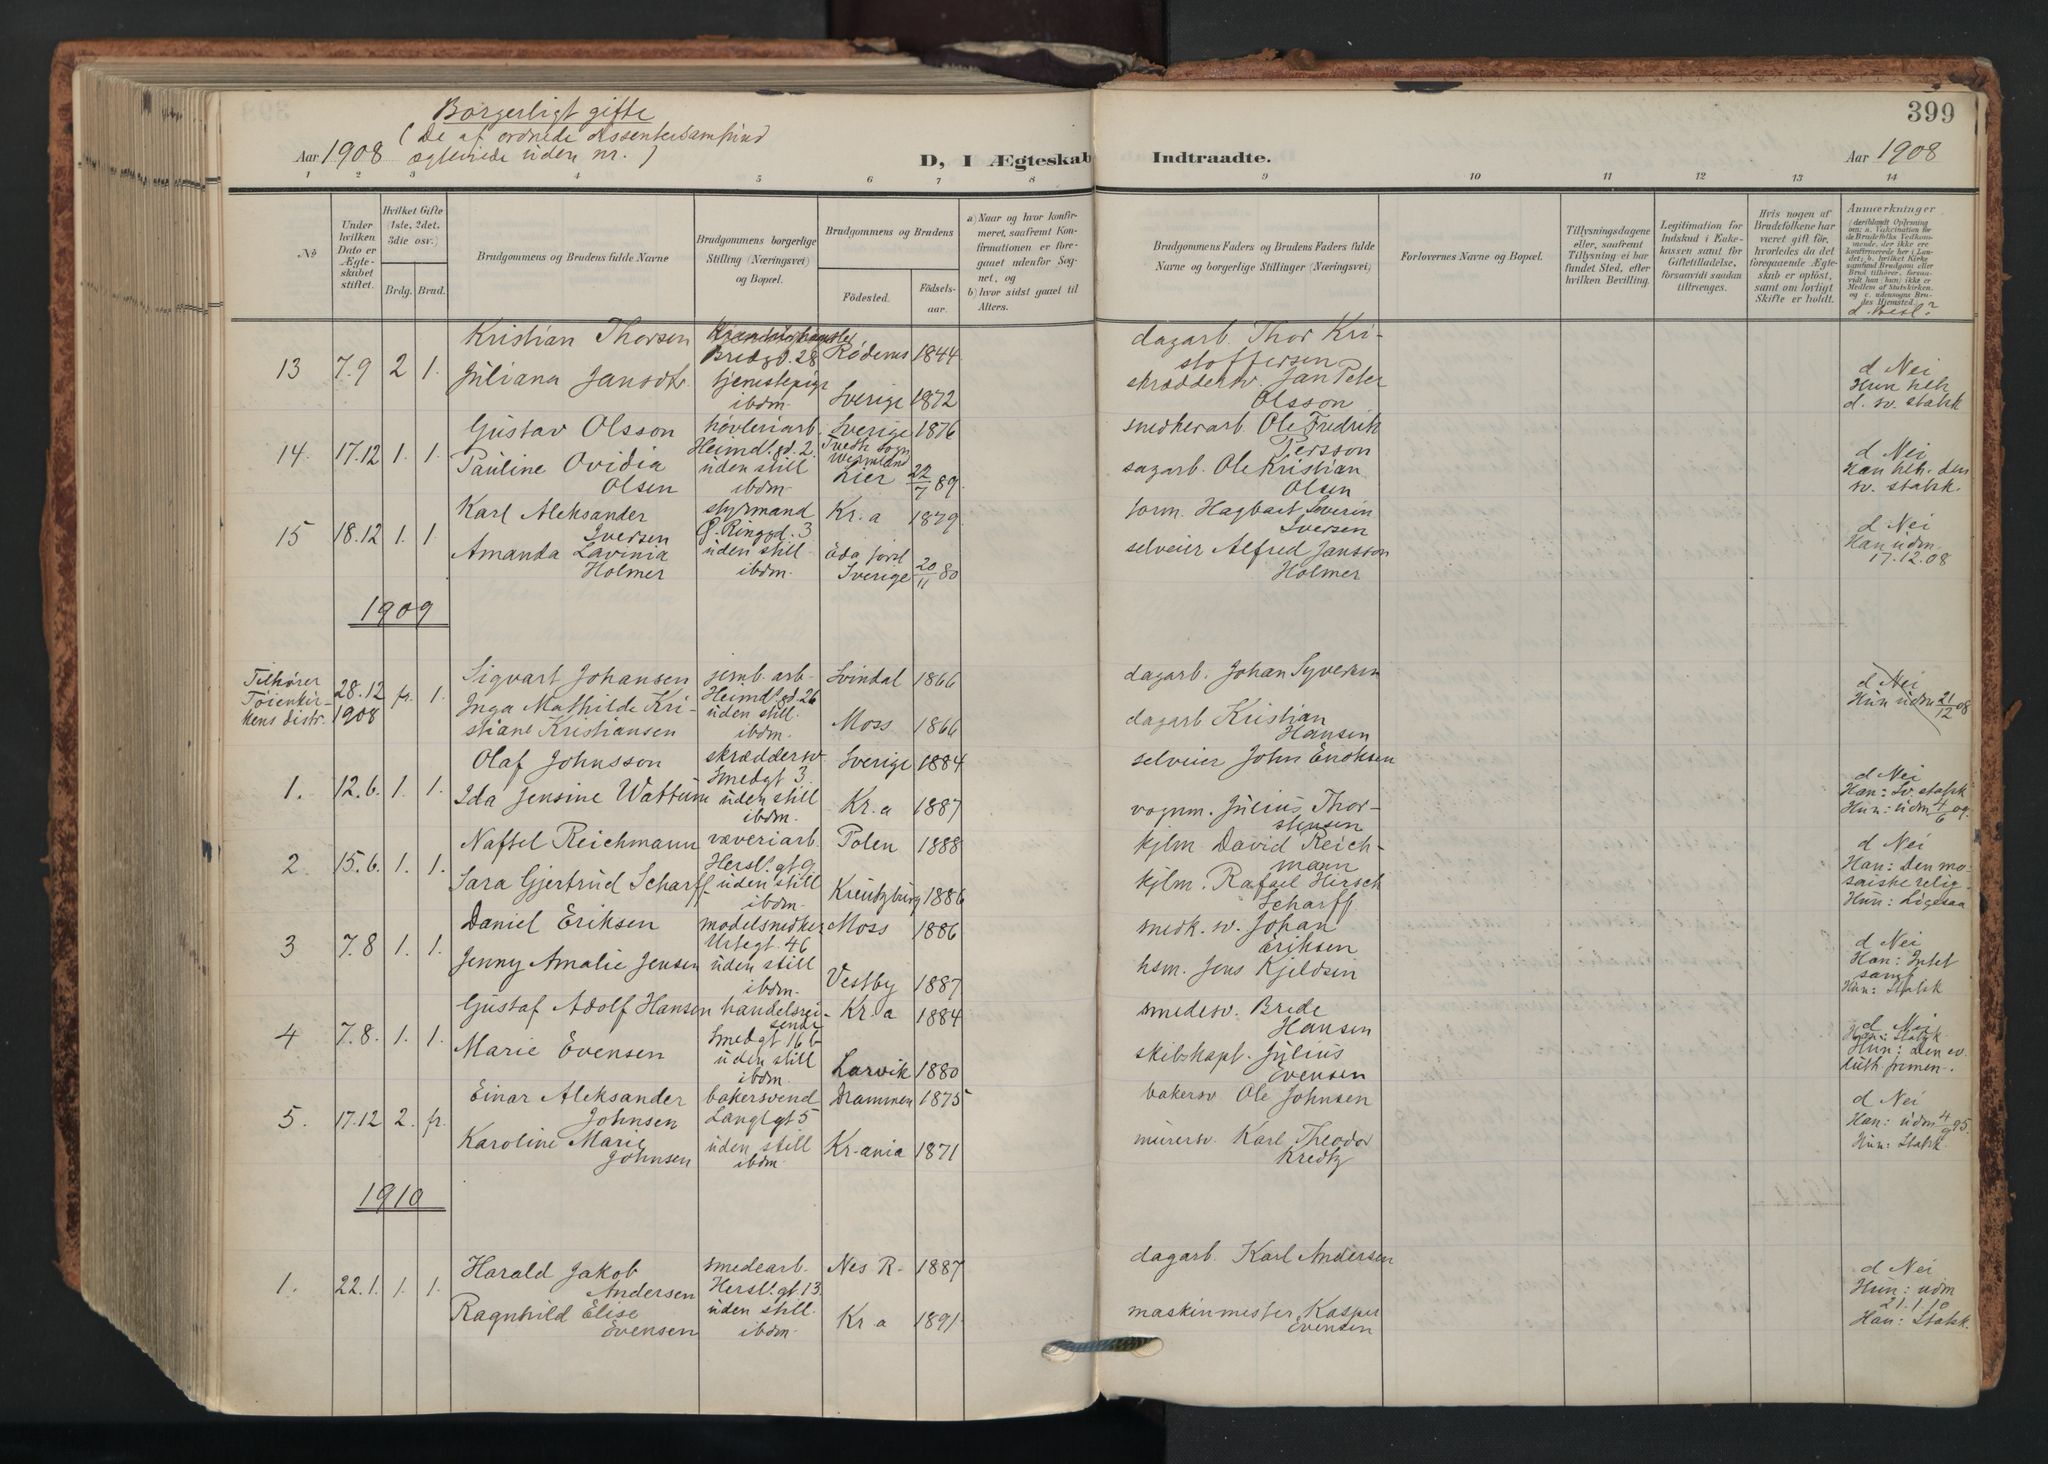 Borgerligt gifte
(De af ordnede dissentersamfund
Aar 1908 ægteviede uden nr.)
D, I Ægteskab Indtraadte.
399
Aar 1908
1 2 3 4 5 6 7 8 9 10 11 12 13 14
No
Under hvilken Dato er Ægteskabet stiftet.
Hvilket Gifte (1ste, 2det, 3die osv.)
Brdg. Brud.
Brudgommens og Brudens fulde Navne
Brudgommens borgerlige Stilling (Næringsvei) og Bopæl.
Brudgommens og Brudens
Födested.
Födselsaar.
a) Naar og hvor konfirmeret, saafremt Konfirmationen er foregaaet udenfor Sognet, og
b) hvor sidst gaaet til Alters.
Brudgommens Faders og Brudens Faders fulde Navne og borgerlige Stillinger (Næringsvei)
Forlovernes Navne og Bopæl.
Tillysningsdagene eller, saafremt Tillysning ei har fundet Sted, efter hvilken Bevilling.
Legitimation for Indskud i Enkekassen samt for Giftetilladelse, forsaavidt saadan tiltrænges.
Hvis nogen af Brudefolkene har været gift för, hvorledes da det foregaaende Ægteskab er oplöst, samt om lovligt Skifte er holdt.
Anmærkninger
d. Besl?
13 7.9 2 1.
Kristian Thorsen
Bredgd. 28 Rødenes 1844
dagarb. Thor Kristoffersen
Juliana Jansdtr. tjenestepige ibdm. Sverige 1872
skræddersv. Jan Peter Olsson
d Nei
Hun
d. sv. statsk
14. 17.12 1. 1.
Gustav Olsson høvleriarb. Heimdl.gd. 2. Sverige 1876
snedkerarb Ole Fredrik Persson
Pauline Ovidia Olsen uden still ibdm. Lier 22/7 89.
sagarb. Ole Kristian Olsen
d Nei
Han den
sv. statsk.
15 18.12 1. 1.
Karl Aleksander Iversen styrmand G. Ringgd. 3 Kr.a 1879.
form. Hagbart Severin Iversen
Amanda Lavinia Holmer uden still. ibdm. Sverige 20/11 80
selveier Alfred Jansson Holmer
d Nei
Han udm.
17.12.08
1909
Tilhører Tøienkirkens distr.
28.12 1908 fr. 1.
Sigvart Johansen Heimdl.gd. 26 Svindal 1866
dagarb. Johan Syversen
Inga Mathilde Kristiane Kristiansen uden still. ibdm. Moss 1866
dagarb Kristian Hansen
d Nei
Hun udm 21/12 08
1. 12.6. 1. 1.
Olaf Johnsson skræddersv. Smedgt 3. Sverige 1884
selveier John Enoksen
Ida Jensine Wattum uden still ibdm. Kr.a 1887
vognm. Julius Thorstensen
d Nei
Han: Sv. statsk
Hun: udm 4/6 09.
2. 15.6. 1. 1.
Naftel Reichmann væveriarb. Hersl. gt 9 Polen 1888
kjlm David Reichmann
Sara Gjertrud Scharff uden still ibdm. Kreutzburg 1886
kjlm. Rafael Hirsch Scharff
d Nei
Han: Den mosaiske relig.
Hun: Ligesaa
3 7.8 1. 1.
Daniel Eriksen modelsnedker Urtegt. 46 Moss 1886
snedk. sv. Johan Eriksen
Jenny Amalie Jensen uden still ibdm. Vestby 1887
hsm. Jens Kjeldsen
d Nei
Han: Intet samf
Hun: Statsk
4 7.8. 1. 1.
Gustaf Adolf Hansen handelsreisende Smedgt 16 b Kr.a 1884
smedesv. Brede Hansen
Marie Evensen uden still ibdm. Larvik 1880
skibskapt. Julius Evensen
d Nei
Han: Statsk.
Hun: Den ev.
luth frimen.
5. 17.12 2. fr.
Einar Aleksander Johnsen bakersvend Langl.gt 5 Drammen 1875
bakersv Ole Johnsen
Karoline Marie Johnsen uden still ibdm. Kr.ania 1871
murersv. Karl Theodor Kredtz
d Nei
Han: udm 4/9 95.
Hun: Statsk.
1910
1. 22.1. 1. 1.
Harald Jakob Andersen smedearb. Hersl. gt 13. Nes R. 1887
dagarb. Karl Andersen
Ragnhild Elise Evensen uden still. ibdm. Kr.a 1891.
maskinmester Kasper Evensen
d Nei
Hun: udm
21.1.10
Han: Statsk.